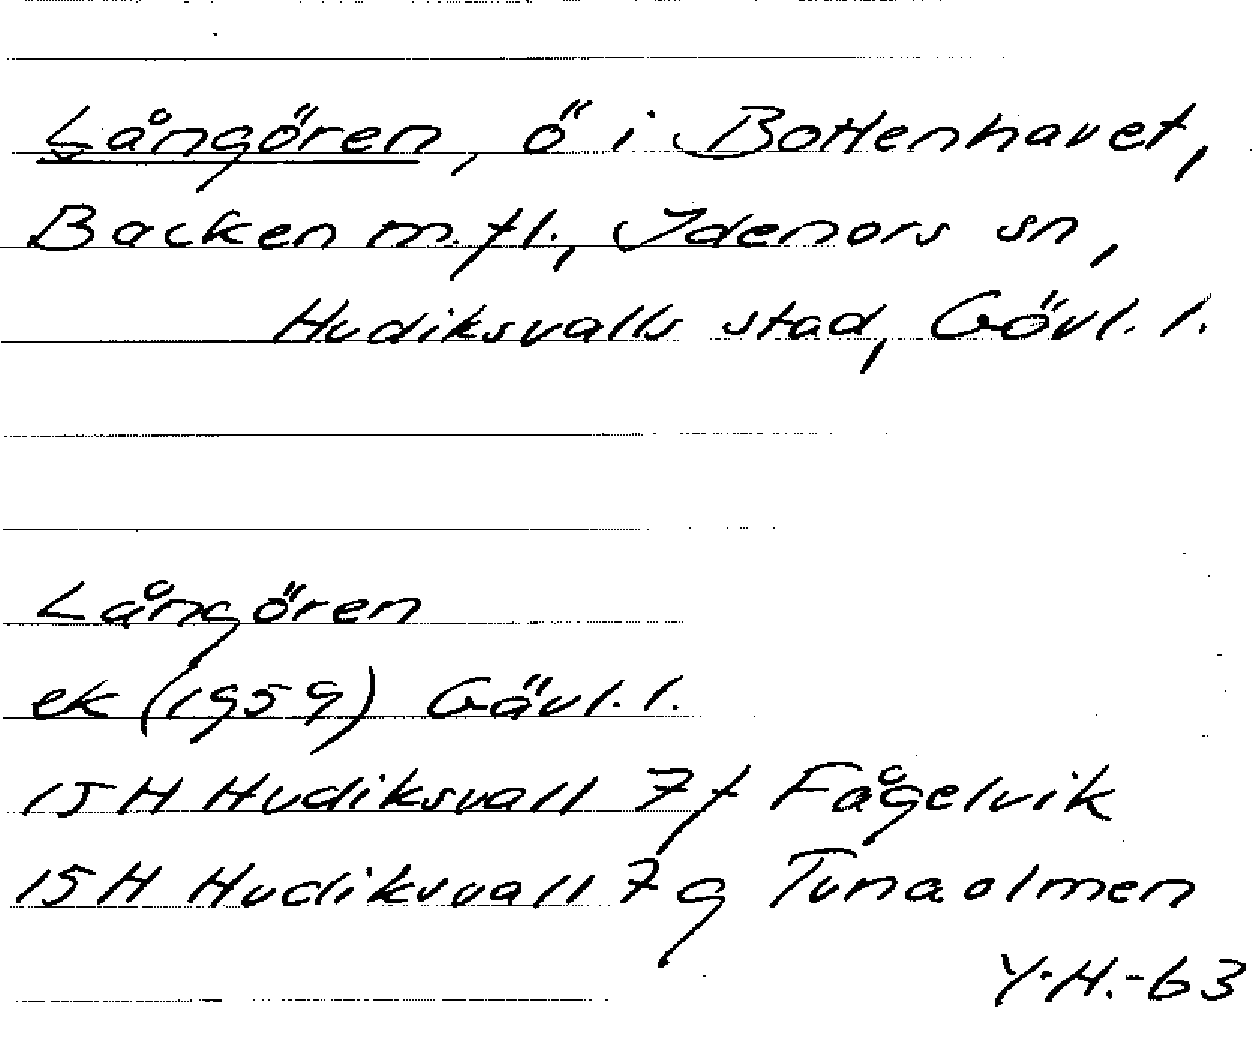 Långören, ö i Bottenhavet,
Backen m.fl., Idenors sn,
Hudiksvalls stad, Gävl. l.
Långören
ek (1959) Gävl. l.
15H Hudiksvall 7f Fågelvik
15H Hudiksvall 7g Tunaolmen
Y.H.-63